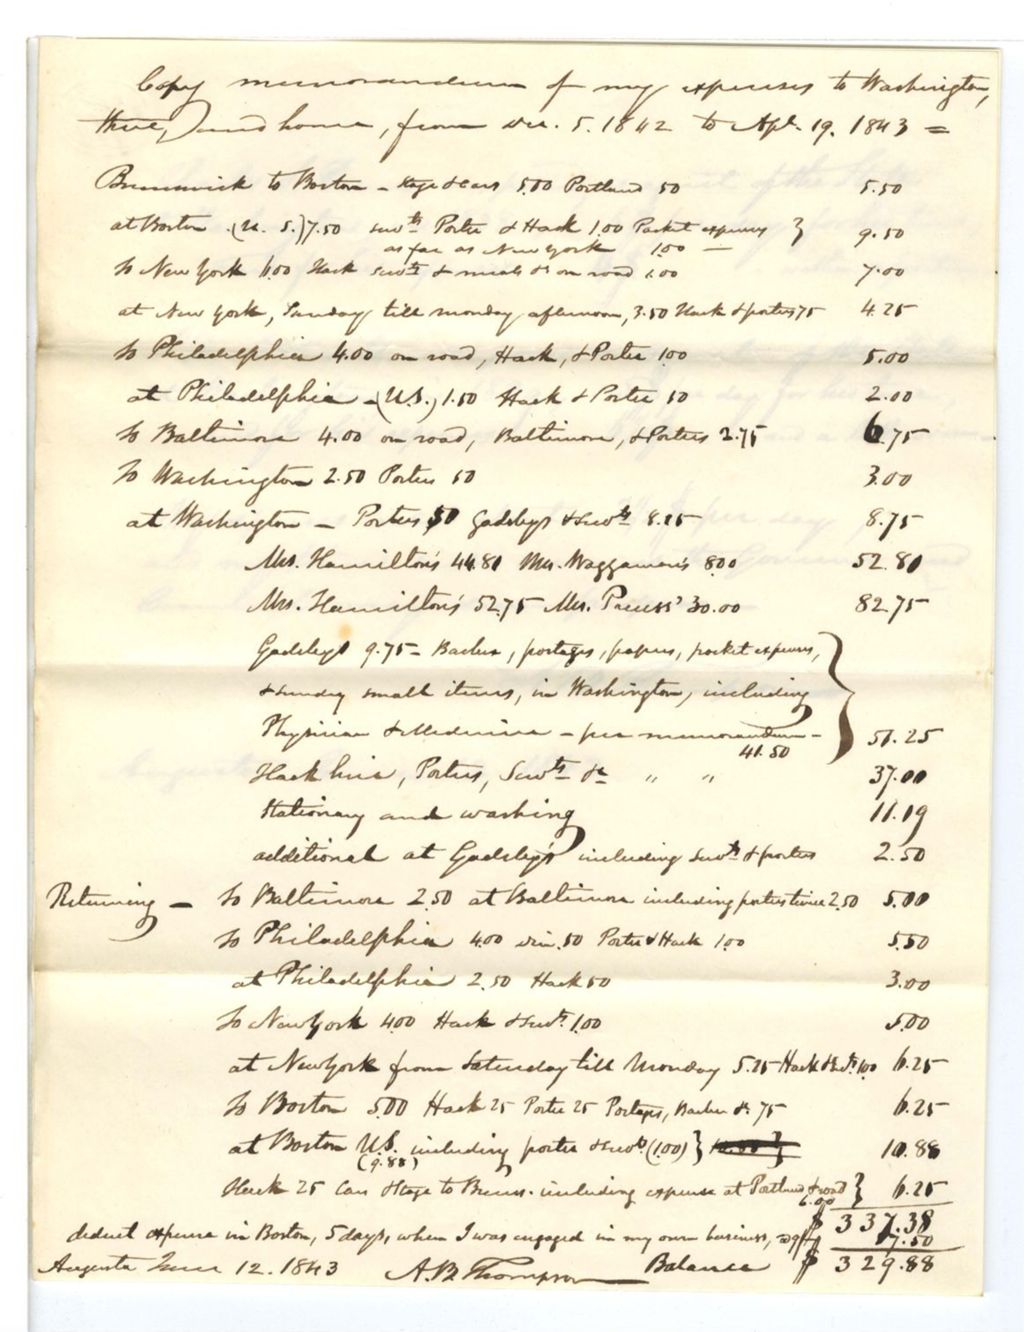 Copy memorandum of my expenses to Washington,
there, and home, from Dec. 5. 1842 to Apl. 19. 1843 =
Brunswick to Boston - stage & cars 5.00 Portland 50 5.50
at Boston (U. S.) 7.50 servts Porter & Hack 1.00 Pocket expenses } 9.50
as far as New York 1.00 —
to New York 6.00 Hack servts & meals &c on road 1.00 7.00
at New York, Sunday till monday afternoon, 3.50 Hack & porters 75 4.25
to Philadelphia 4.00 on road, Hack, & Porter 1.00 5.00
at Philadelphia - (U.S.) 1.50 Hack & Porter 50 2.00
to Baltimore 4.00 on road, Baltimore, & Porters 2.75 6.75
to Washington 2.50 Porters 50 3.00
at Washington - Porters 50 Gadsby's & Servts 8.25 8.75
Mrs. Hamilton's 44.80 Mrs. Waggaman's 8.00 52.80
Mrs. Hamilton's 52.75 Mrs. 30.00 82.75
Gadsby's 9.75 - Barber, postages, papers, pocket expenses,
& sundry small items, in Washington, including
Physician & Medicine - per memorandum - 41.50 } 51.25
Hack hire, Porters, Servts &c " " 37.00
Stationary and washing 11.19
additional at Gadsby's including servts & porters 2.50
Returning - to Baltimore 2.50 at Baltimore including porters twice 2.50 5.00
to Philadelphia 4.00 din. 50 Porter & Hack 1.00 5.50
at Philadelphia 2.50 Hack 50 3.00
to New York 4.00 Hack & Servt. 1.00 5.00
at New York from Saturday till Monday 5.25 Hack & servts. 1.00 6.25
to Boston 5.00 Hack 25 Porter 25 Postages, Barber &c 75 6.25
at Boston U.S. including porter & servts (1.00) } 10.88
(9.88)
Hack 25 Cars & Stage to Bruns. including expense at Portland & road 6.00 } 6.25
$ 337.38
deduct expense in Boston, 5 days, when I was engaged in my own business, 7.50
Augusta June 12. 1843 A. B. Thompson Balance $ 329.88